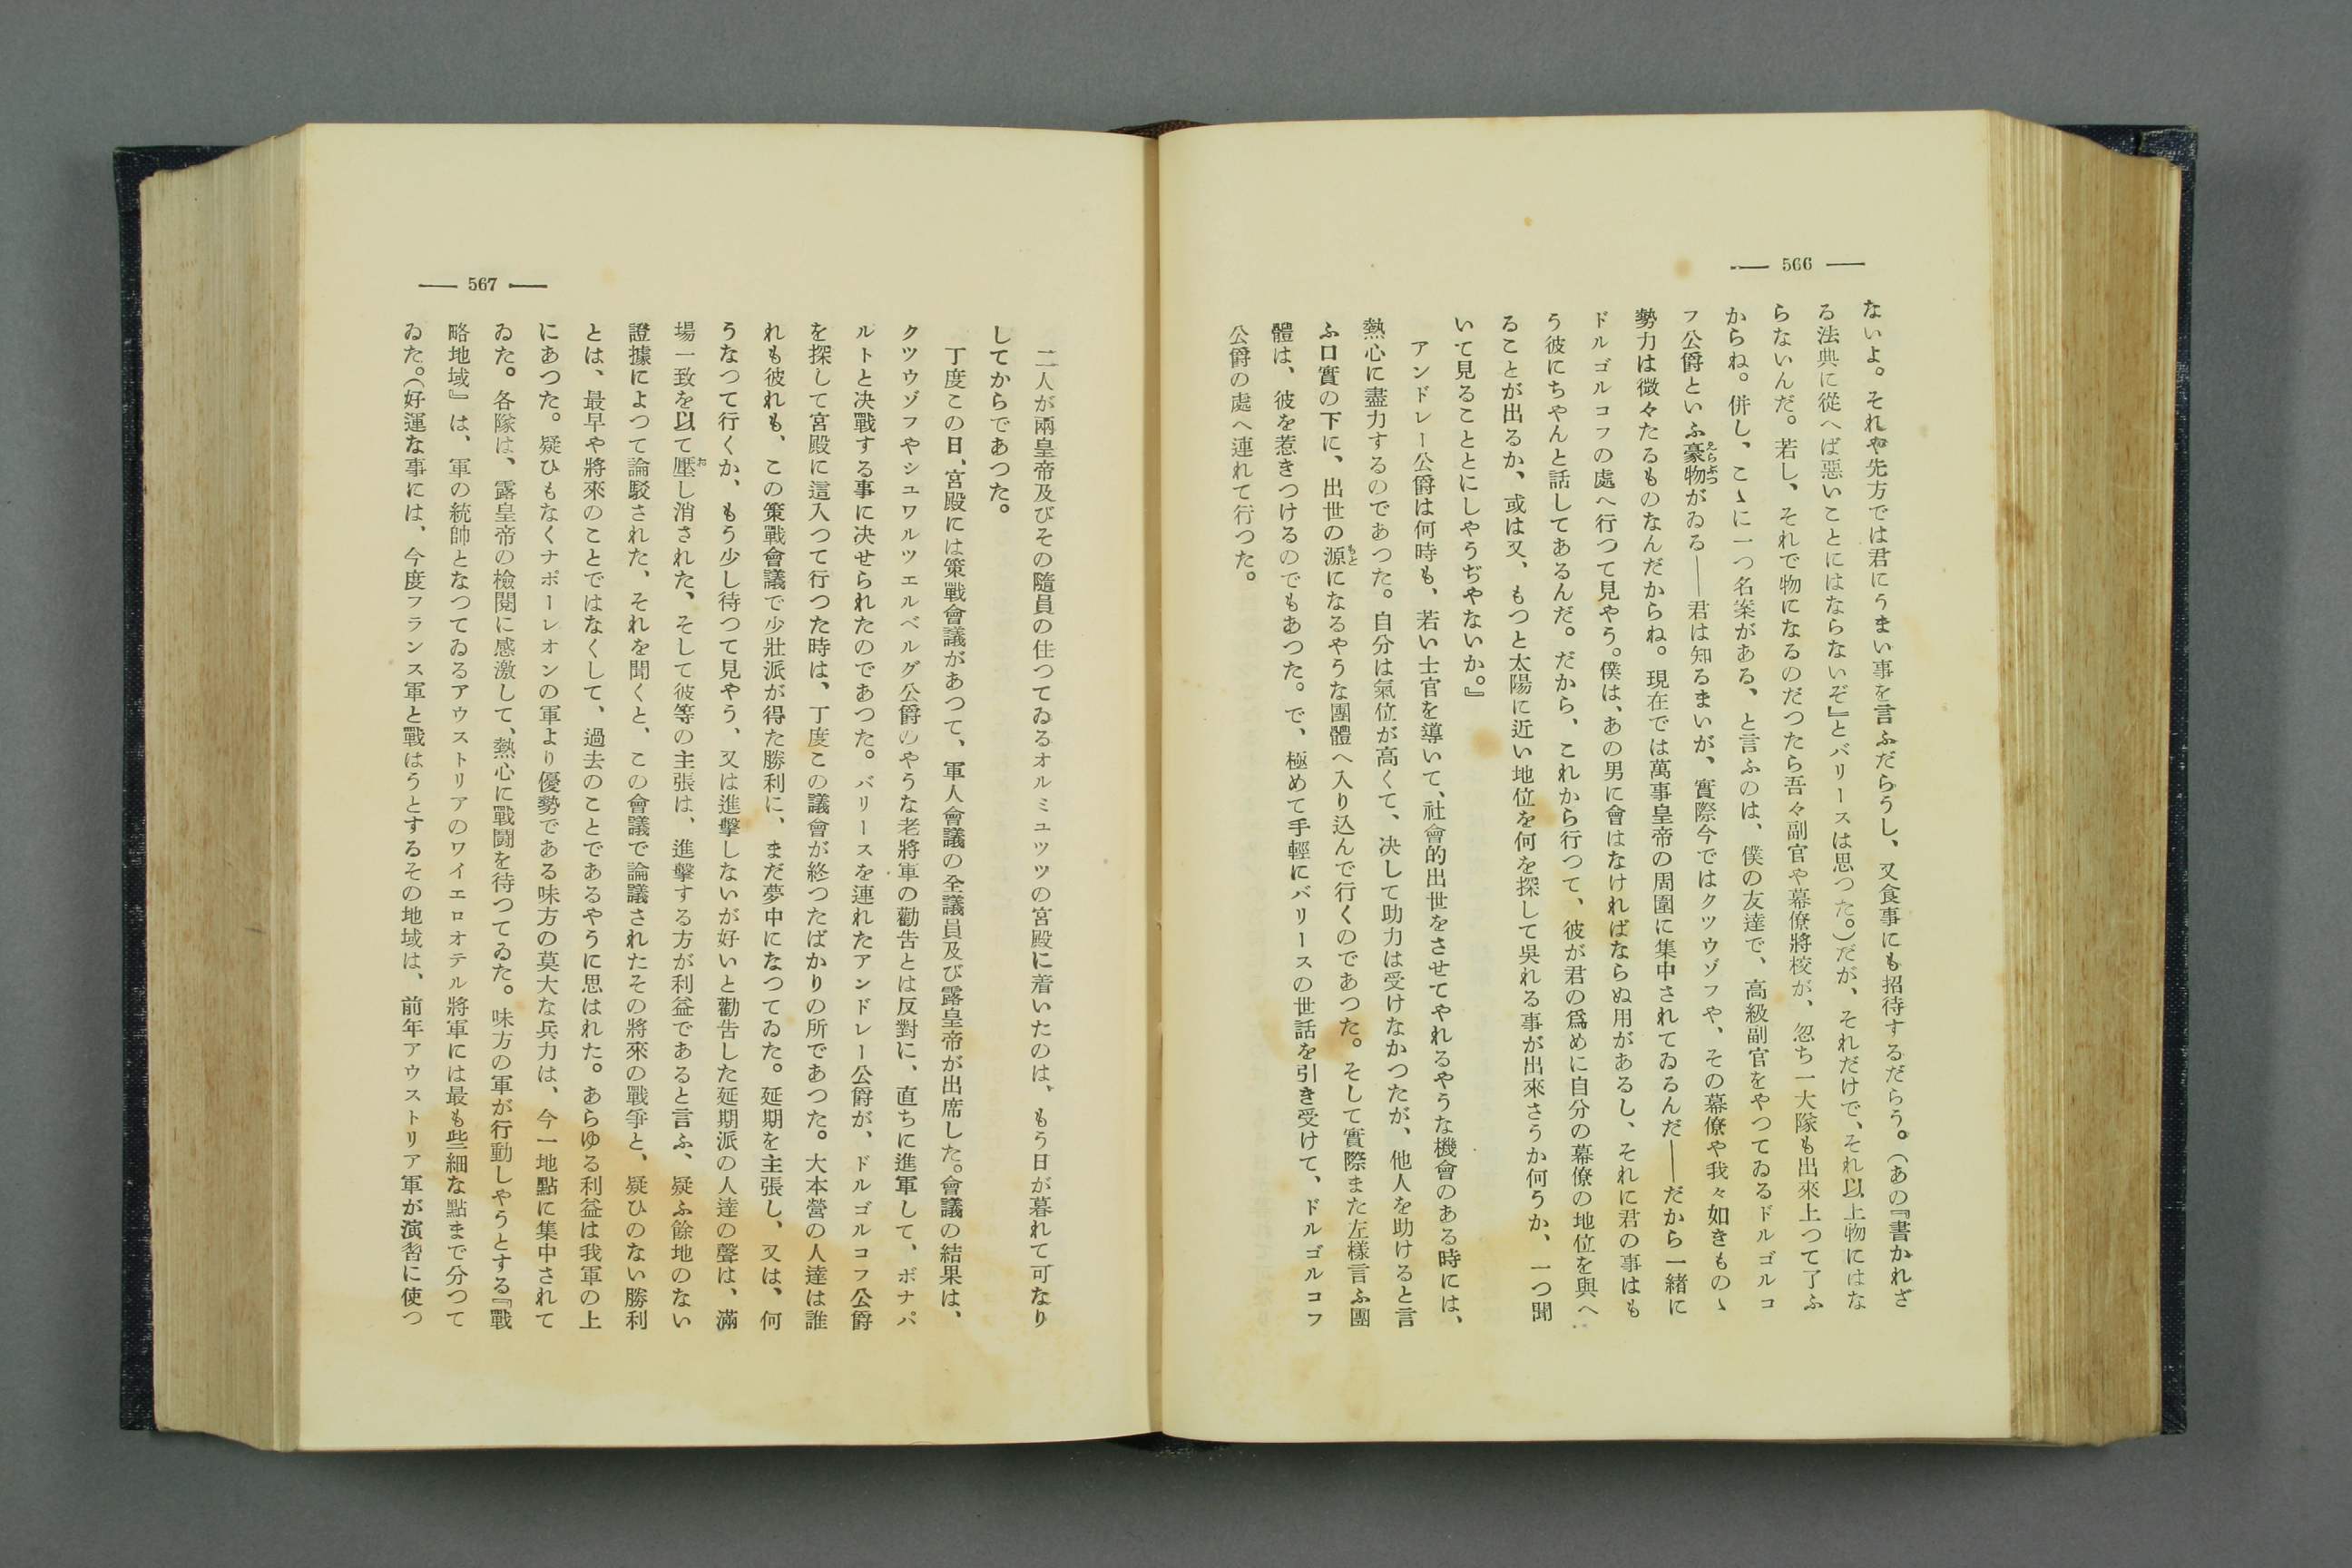 — 566 —
ないよ。それや先方では君にうまい事を言ふだらうし、又食事にも招待するだらう。（あの『書かれざ
る法典に從へば惡いことにはならないぞ』とバリースは思つた。）だが、それだけで、それ以上物にはな
らないんだ。若し、それで物になるのだつたら吾々副官や幕僚將校が、忽ち一大隊も出來上つて了ふ
からね。併し、こゝに一つ名案がある、と言ふのは、僕の友達で、高級副官をやつてゐるドルゴルコ
フ公爵といふ豪物がゐる——君は知るまいが、實際今ではクツウゾフや、その幕僚や我々如きものゝ
勢力は微々たるものなんだからね。現在では萬事皇帝の周圍に集中されてゐるんだ——だから一緒に
ドルゴルコフの處へ行つて見やう。僕は、あの男に會はなければならぬ用があるし、それに君の事はも
う彼にちやんと話してあるんだ。だから、これから行つて、彼が君の爲めに自分の幕僚の地位を與へ
ることが出るか、或は又、もつと太陽に近い地位を何を探して呉れる事が出來さうか何うか、一つ聞
いて見ることとにしやうぢやないか。』
アンドレー公爵は何時も、若い士官を導いて、社會的出世をさせてやれるやうな機會のある時には、
熱心に盡力するのであつた。自分は氣位が高くて、決して助力は受けなかつたが、他人を助けると言
ふ口實の下に、出世の源になるやうな團體へ入り込んで行くのであつた。そして實際また左樣言ふ團
體は、彼を惹きつけるのでもあつた。で、極めて手輕にバリースの世話を引き受けて、ドルゴルコフ
公爵の處へ連れて行つた。
— 567 —
二人が兩皇帝及びその隨員の住つてゐるオルミュツツの宮殿に着いたのは、もう日が暮れて可なり
してからであつた。
丁度この日、宮殿には策戰會議があつて、軍人會議の全議員及び露皇帝が出席した。會議の結果は、
クツウゾフやシュワルツエルベルグ公爵のやうな老將軍の勸吿とは反對に、直ちに進軍して、ボナパ
ルトと決戰する事に決せられたのであつた。バリースを連れたアンドレー公爵が、ドルゴルコフ公爵
を探して宮殿に這入つて行つた時は、丁度この議會が終つたばかりの所であつた。大本營の人達は誰
れも彼れも、この策戰會議で少壯派が得た勝利に、まだ夢中になつてゐた。延期を主張し、又は、何
うなつて行くか、もう少し待つて見やう、又は進擊しないが好いと勸吿した延期派の人達の聲は、滿
場一致を以て壓し消された、そして彼等の主張は、進擊する方が利益であると言ふ、疑ふ餘地のない
證據によつて論駁された、それを聞くと、この會議で論議されたその將來の戰爭と、疑ひのない勝利
とは、最早や將來のことではなくして、過去のことであるやうに思はれた。あらゆる利益は我軍の上
にあつた。疑ひもなくナポーレオンの軍より優勢である味方の莫大な兵力は、今一地點に集中されて
ゐた。各隊は、露皇帝の檢閱に感激して、熱心に戰鬪を待つてゐた。味方の軍が行動しやうとする『戰
略地域』は、軍の統帥となつてゐるアウストリアのワイエロオテル將軍には最も些細な點まで分つて
ゐた。（好運な事には、今度フランス軍と戰はうとするその地域は、前年アウストリア軍が演習に使つ